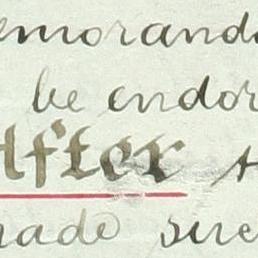 memoranda
be endor
After t
made sure